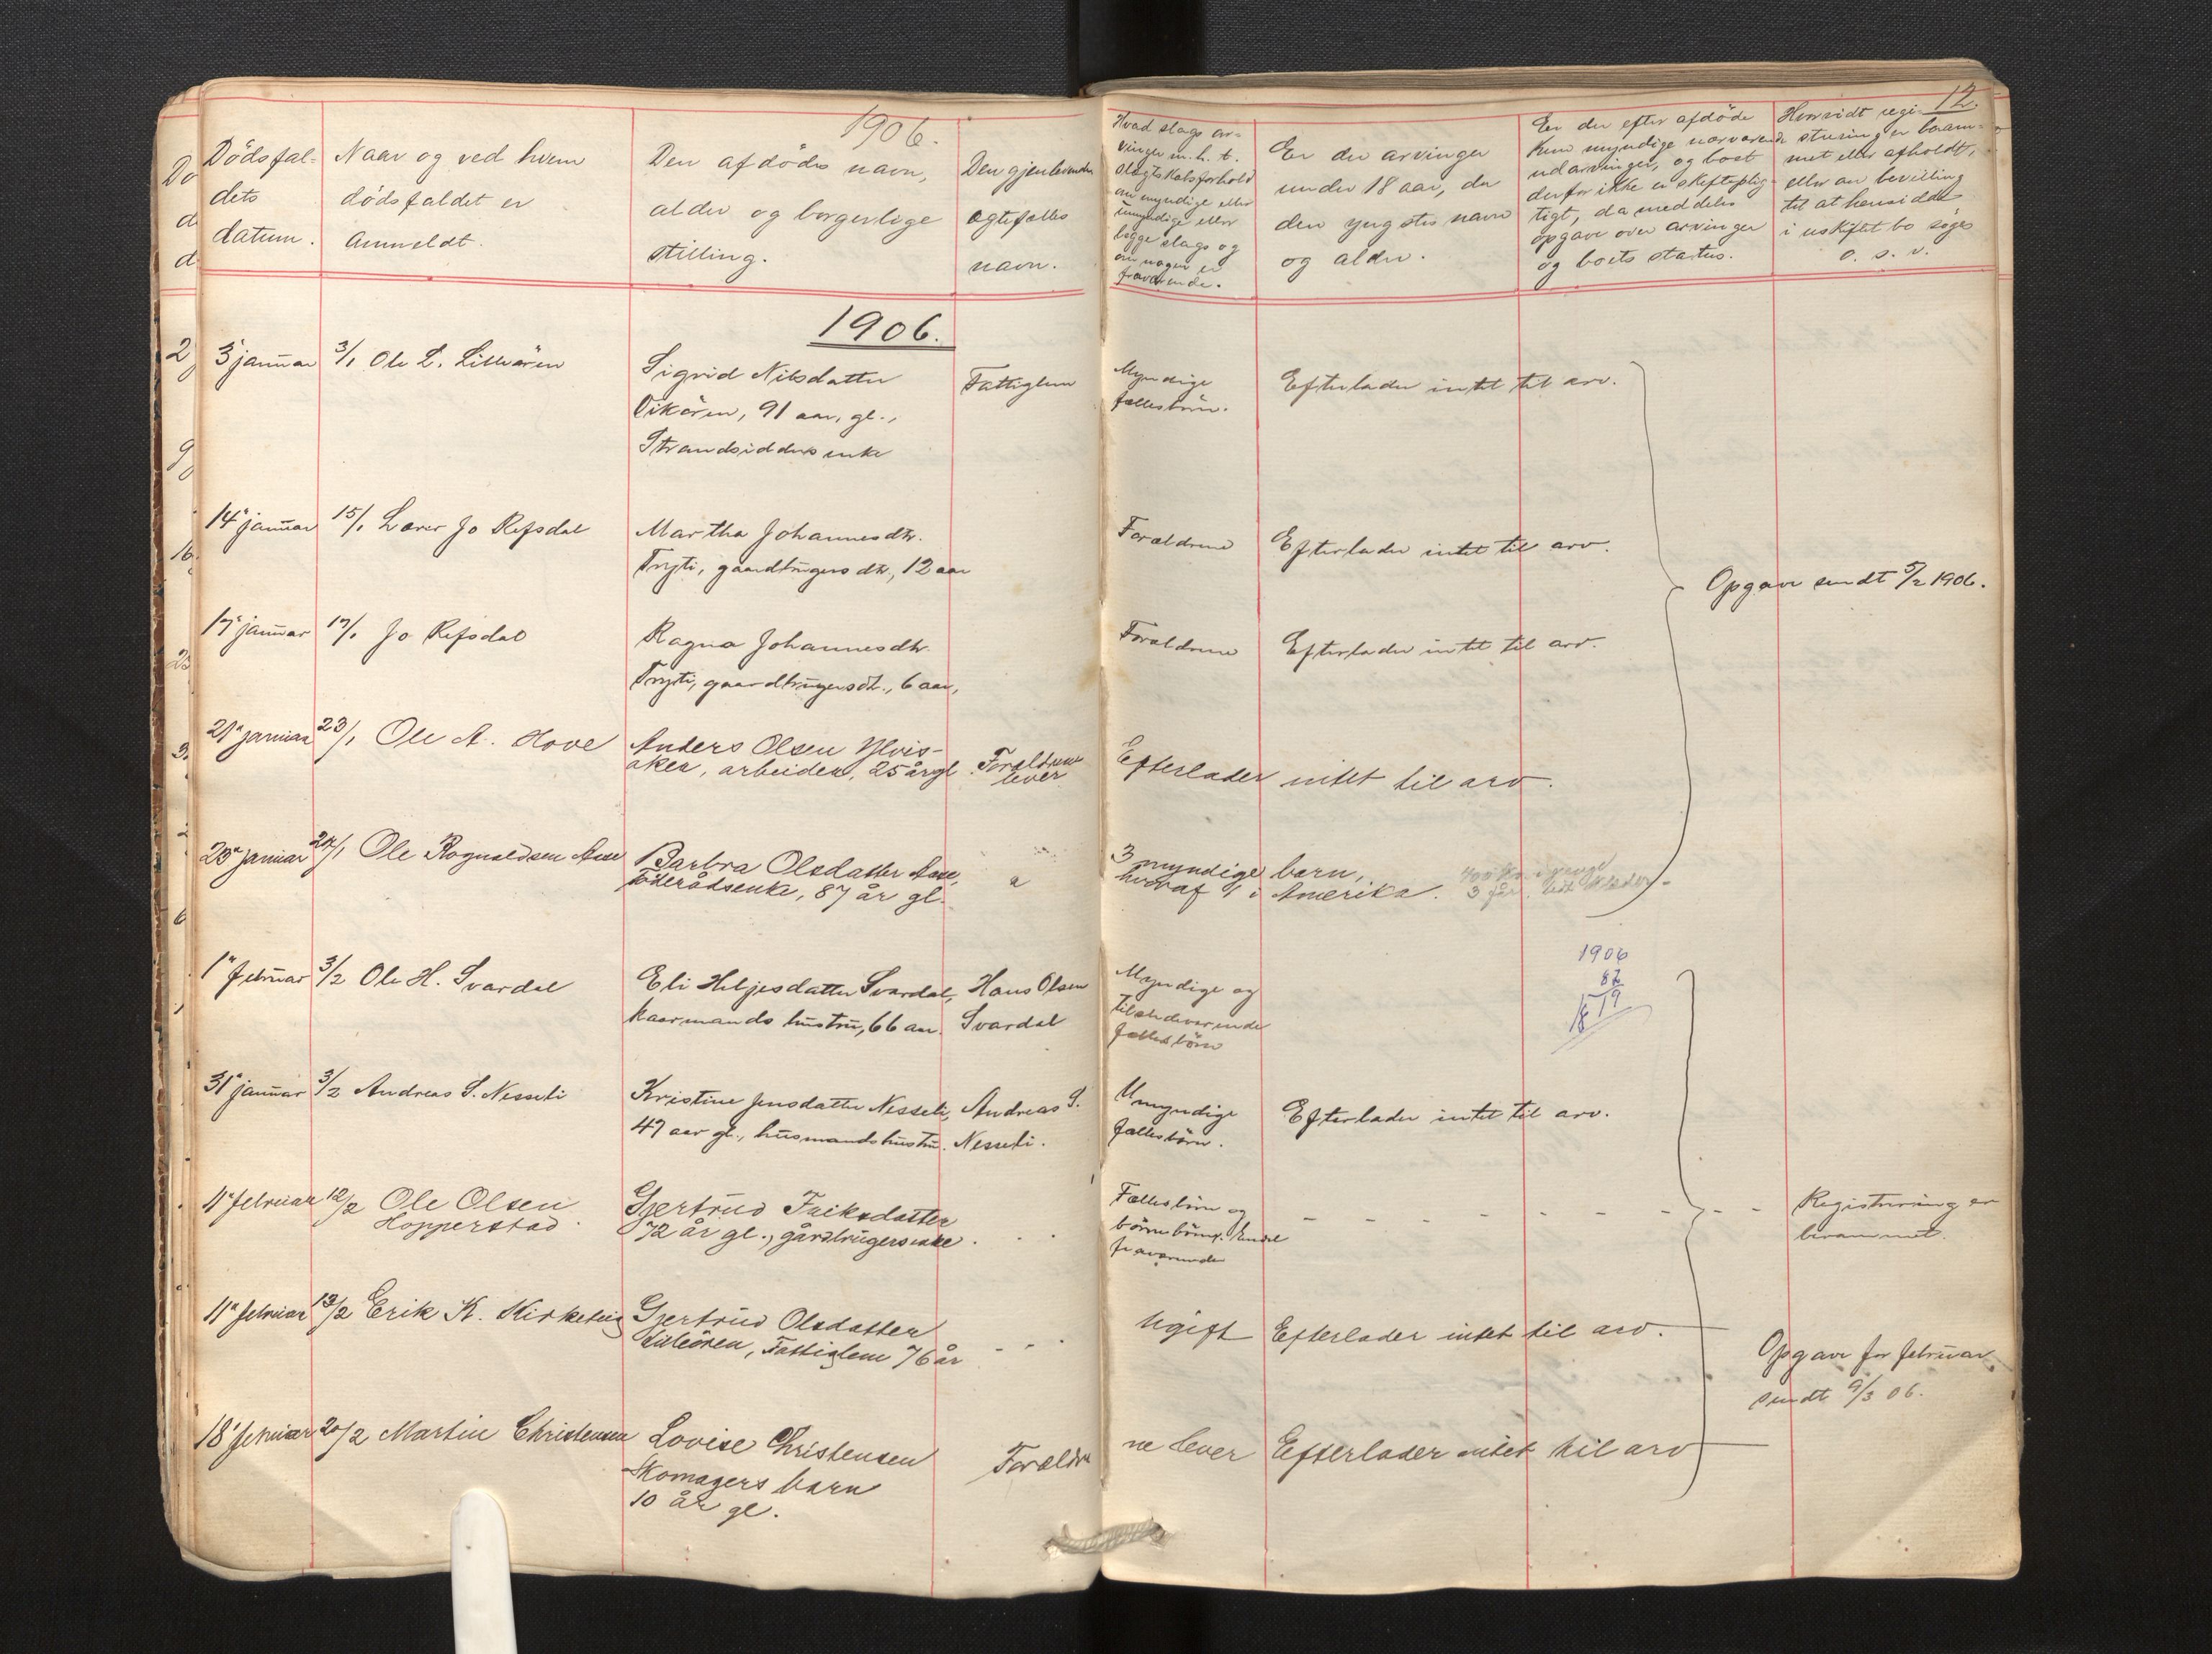 1906.
12.
Dödsfal-
dets
datum.
Naar og ved hvem
dödsfaldet er
Anmeldt.
Den afdödes navn,
alder og borgerlige
stilling.
Den gjenlevendes
ægtefælles
navn.
Hvad slags ar-
vinger m. h. t.
slægtskabsforhold
om myndige eller
umyndige eller
begge slags og
om nogen er
fraværende.
Er der arvinger
under 18 aar, da
den yngstes navn
og alder.
Er der efter afdöde
kun myndige nærværende
udarvinger, og boet
derfor ikke er skifteplig-
tigt, da meddeles
opgave over arvinger
og boets status.
Hvorvidt regi-
strering er beram-
met eller afholdt,
eller om bevilling
til at hensidde
i uskiftet bo söges
o. s. v.
1906.
3 januar 3/1 Ole L. Lilleören
Sigrid Nilsdatter
Vikören, 91 aar, gl.,
Strandsidders enke
Fattiglem
Myndige
fællesbörn.
Efterlader intet til arv.
14 januar 15/1 Lærer Jo Refsdal
Martha Johannesdtr.
Tryti, gaardbrugers dtr., 12 aar
Forældrene
Efterlader intet til arv.
Opgave sendt 5/2 1906.
17 januar 17/1 Jo Refsdal
Ragna Johannesdtr.
Tryti, gaardbrugersdtr., 6 aar,
Forældrene
Efterlader intet til arv.
21 januar 23/1 Ole A. Hove
Anders Olsen Ylvis-
aker, arbeider, 25 år gl.
Forældrene
lever
Efterlader intet til arv.
23 januar 24/1 Ole Rognaldsen Aase
Barbra Olsdatter Aase,
Föderådsenke, 87 år gl.
3 myndige barn,
hvoraf 1 i Amerika.
400 kr. i penge
3 får, lidt klæder
1906
87
1819
1 februar 3/2 Ole H. Svardal
Eli Heljesdatter Svardal,
kaarmands hustru, 66 aar.
Hans Olsen
Svardal
Myndige og
tilstedeværende
fællesbörn
31 januar 3/2 Andreas S. Nesseli
Kristine Jensdatter Nesseli,
47 aar gl., husmandshustru.
Andreas S.
Nesseli.
Umyndige
fællesbörn.
Efterlader intet til arv.
4 februar 12/2 Ole Olsen
Hopperstad
Gjertrud Eriksdatter
72 år gl., gårdbrugersenke.
Fællesbörn og
börnebörn. Endel
fraværende
Registrering er
berammet.
11 februar 13/2 Erik K. Kirketeig
Gjertrud Olsdatter
Lilleören, Fattiglem 76 år
Ugift
Efterlader intet til arv.
Opgave for februar
sendt 9/3 06.
18 februar 20/2 Martin Christensen
Lovise Christensen
Skomagers barn
10 år gl.
Forældre
ne lever
Efterlader intet til arv